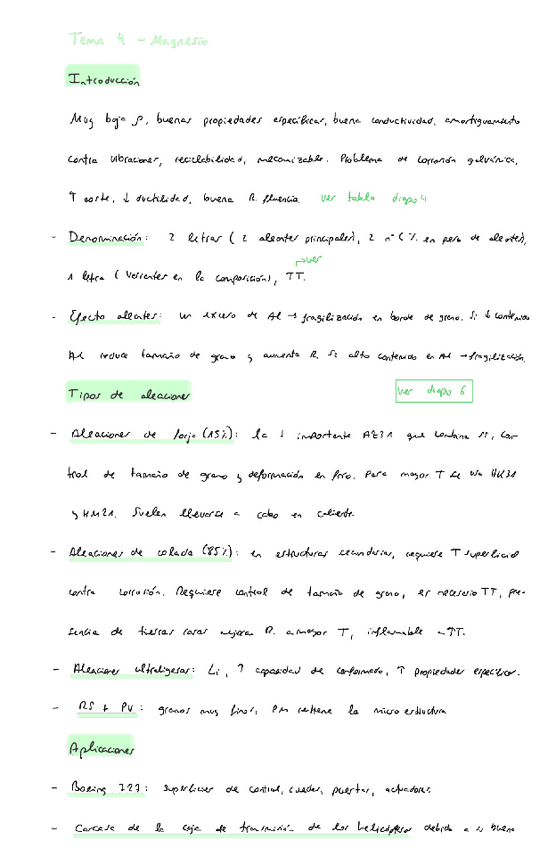 Tema 4 - Magnesio
Introducción
Muy baja ρ, buenas propiedades específicas, buena conductividad, amortiguamiento
contra vibraciones, reciclabilidad, mecanizable. Problema de corrosión galvánica,
↑ coste, ↓ ductilidad, buena R. fluencia ver tabla diapo 4
- Denominación: 2 letras (2 aleantes principales), 2 nº (% en peso de aleantes),
→ver
1 letra (variantes en la composición), TT.
- Efecto aleantes: un exceso de Al → fragilización en borde de grano. Si ↓ contenido
Al reduce tamaño de grano y aumenta R. Si alto contenido en Al → fragilización.
Tipos de aleaciones
ver diapo 6
- Aleaciones de forja (15%): la ↓ importante AZ31 que combina SS, con-
trol de tamaño de grano y deformación en frío. Para mayor T se usa HK31
y HM21. Suelen llevarse a cabo en caliente.
- Aleaciones de colada (85%): en estructuras secundarias, requiere T superficial
contra corrosión. Requiere control de tamaño de grano, es necesario TT, pre-
sencia de tierras raras mejora R. a mayor T, inflamable a ↑T.
- Aleaciones ultraligeras: Li, ↑ capacidad de conformado, ↑ propiedades específicas.
- RS + PV: granos muy finos, PM retiene la microestructura
Aplicaciones
- Boeing 727: superficies de control, ruedas, puertas, actuadores.
- Carcasa de la caja de transmisión de los helicópteros debido a su buena